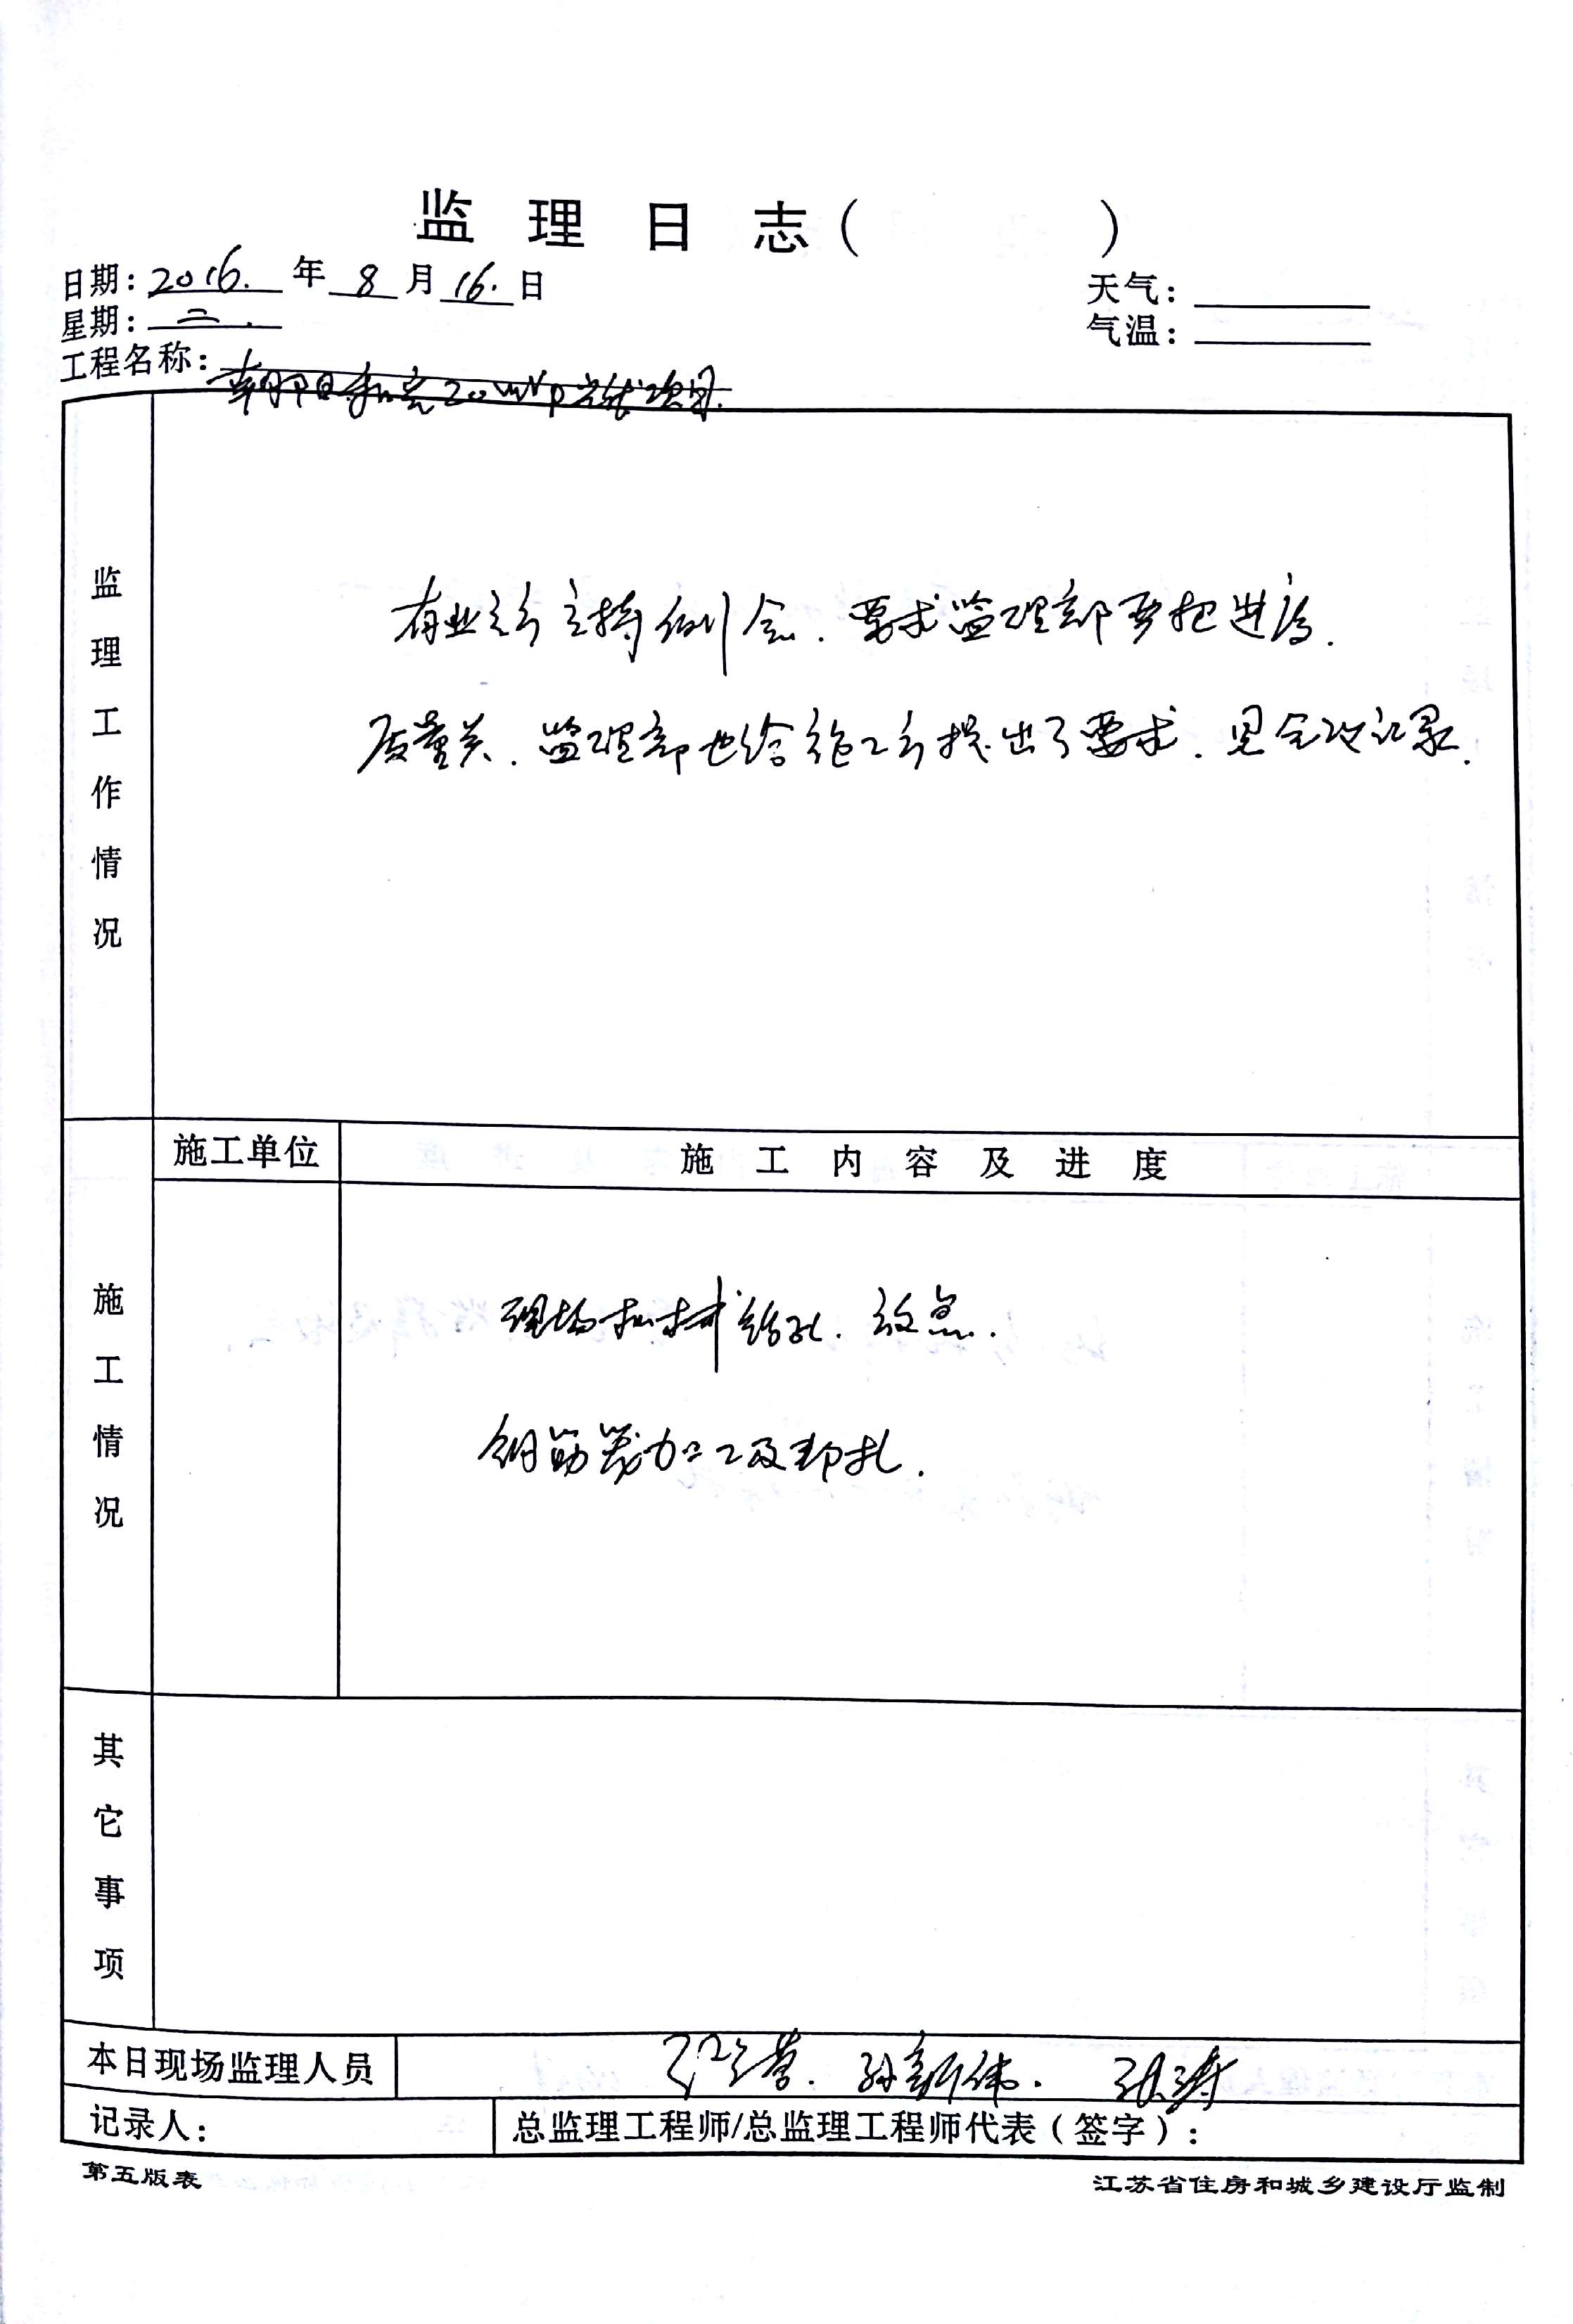 监理日志（　　　）
日期：2016.年8月16.日
天气：
星期：二.
气温：
工程名称：朝阳和光20MWp光伏项目.
监理工作情况
有业主方主持例会.要求监理部要把进度.
质量关.监理部也给施工方提出了要求.见会议记录.
施工单位
施工内容及进度
施工情况
现场桩材钻孔.放点.
钢筋笼加工及绑扎.
其它事项
本日现场监理人员 孙新伟. 张涛
记录人：
总监理工程师/总监理工程师代表（签字）：
第五版表
江苏省住房和城乡建设厅监制